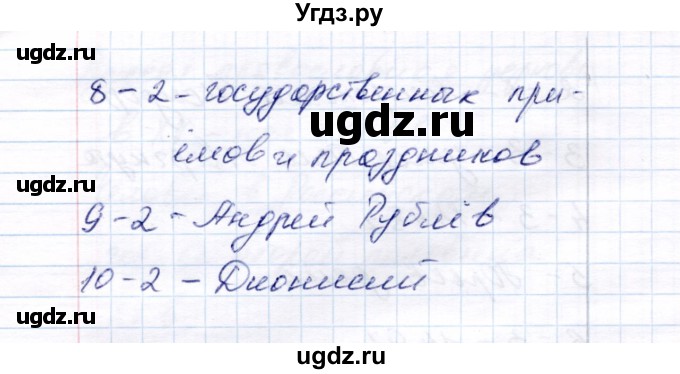 Угдз.ру
ugdz.ru ugdz.ru
8 – 2 – государственных при-
ugdz.ru
ёмов и праздников
ugdz.ru ugdz.ru
9 – 2 – Андрей Рублёв
10 – 2 – Дионисий
ugdz.ru ugdz.ru
ugdz.ru